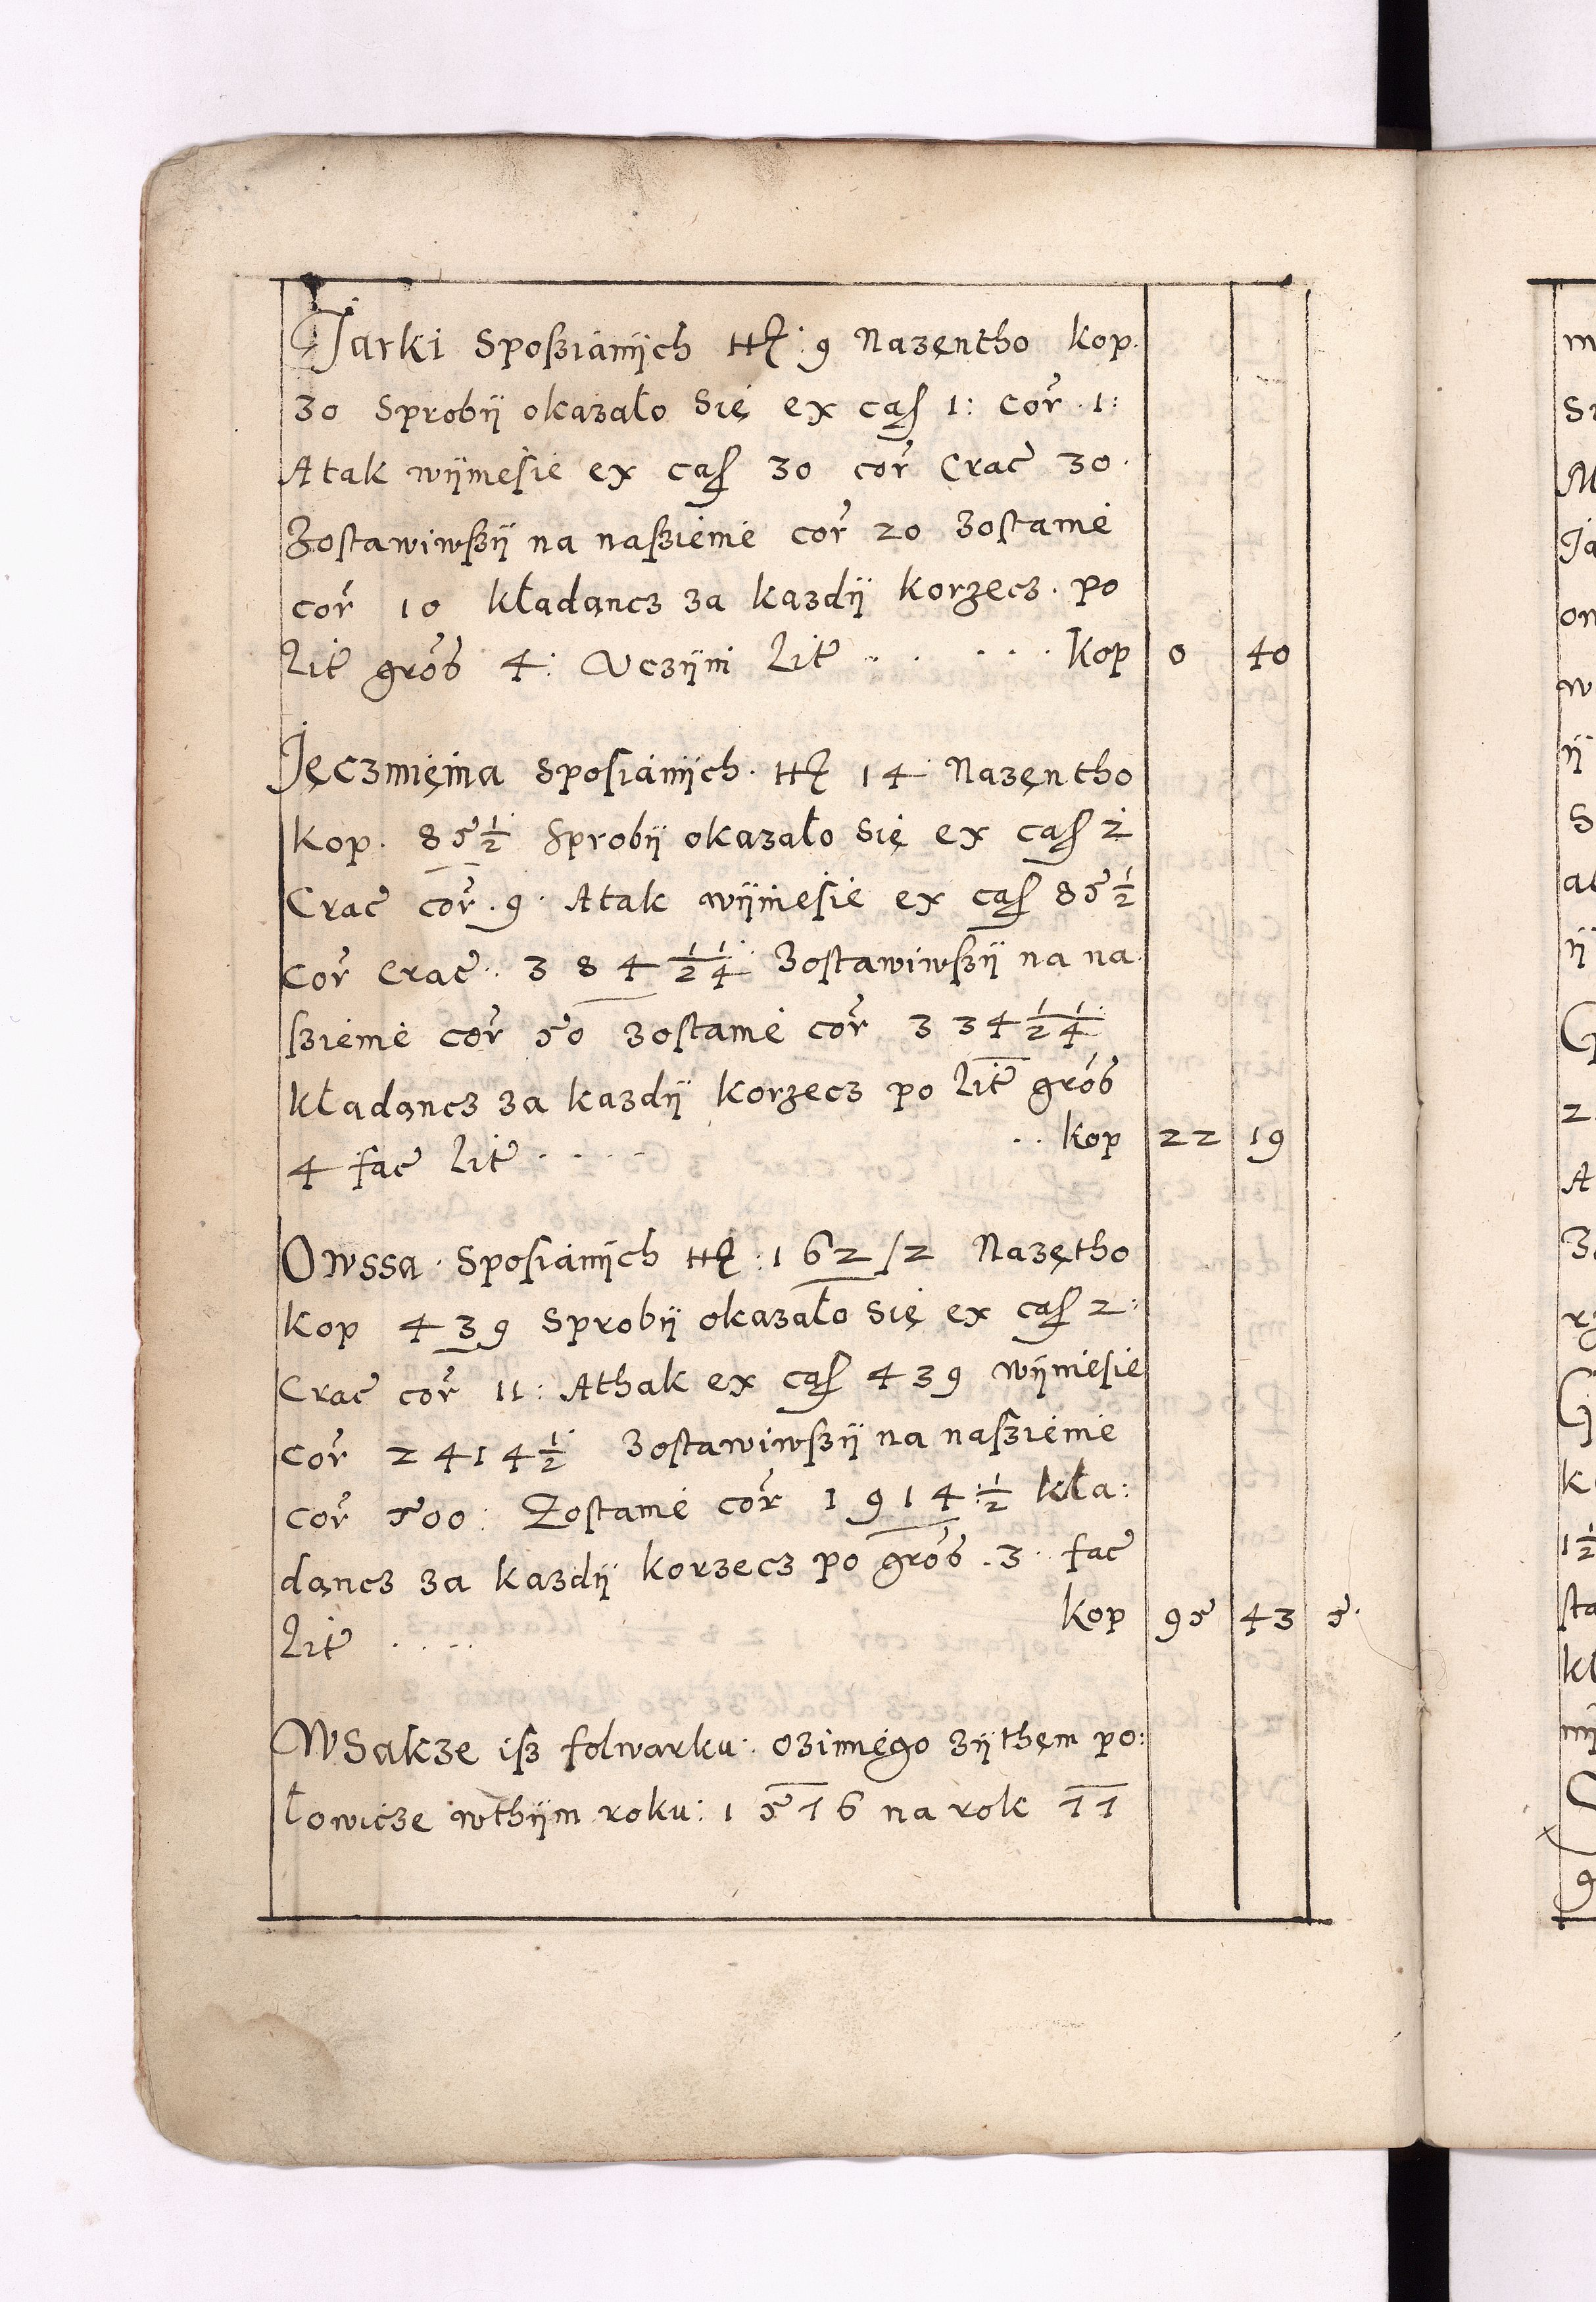 Jarki Sposzianych ... 9 Nazentho kop.
30 Sproby okazało Się ex cas 1: cor̃ 1:
Atak wynieſie ex cas 30 cor̃ Crac̃ 30.
Zoſtawiwſzy na naſzienie cor̃ 20 zoſtanie
cor̃ 10 kładancz za kazdy korzecz. po
Lit̃ grõs 4: Uczyni Lit̃ . . . . . . kop 0 40
Jęczmięnia Spoſianych. ... 14 Nazentho
kop. 85½ Sproby okazało Się ex cas 2
Crac̃ cor̃. 9. Atak wynieſie ex cas 85½
cor̃ Crac̃. 384 ½ ¼ Zoſtawiwſzy na na
ſzienie cor̃ 50 zoſtanie cor̃ 334 ½ ¼
kładancz za kazdy korzecz po Lit̃ grõs
4 fac̃ Lit̃ . . . . . . kop 22 19
Owssa. Spoſianych ... : 162/2 Nazętho
kop 439 Sproby okazało Się ex cas 2:
Crac̃ cor̃ 11: Athak ex cas 439 wynieſie
cor̃ 2414½ Zoſtawiwſzy na naſzienie
cor̃ 500: Zoſtanie cor̃ 1914:½ kła:
dancz za kazdy korzecz po grõs. 3. fac̃
Lit̃ . . . . kop 95 43 5.
WSakze iſz folwarku: ozimnego zythem po:
łowicze wthym roku: 1576 na rok 77